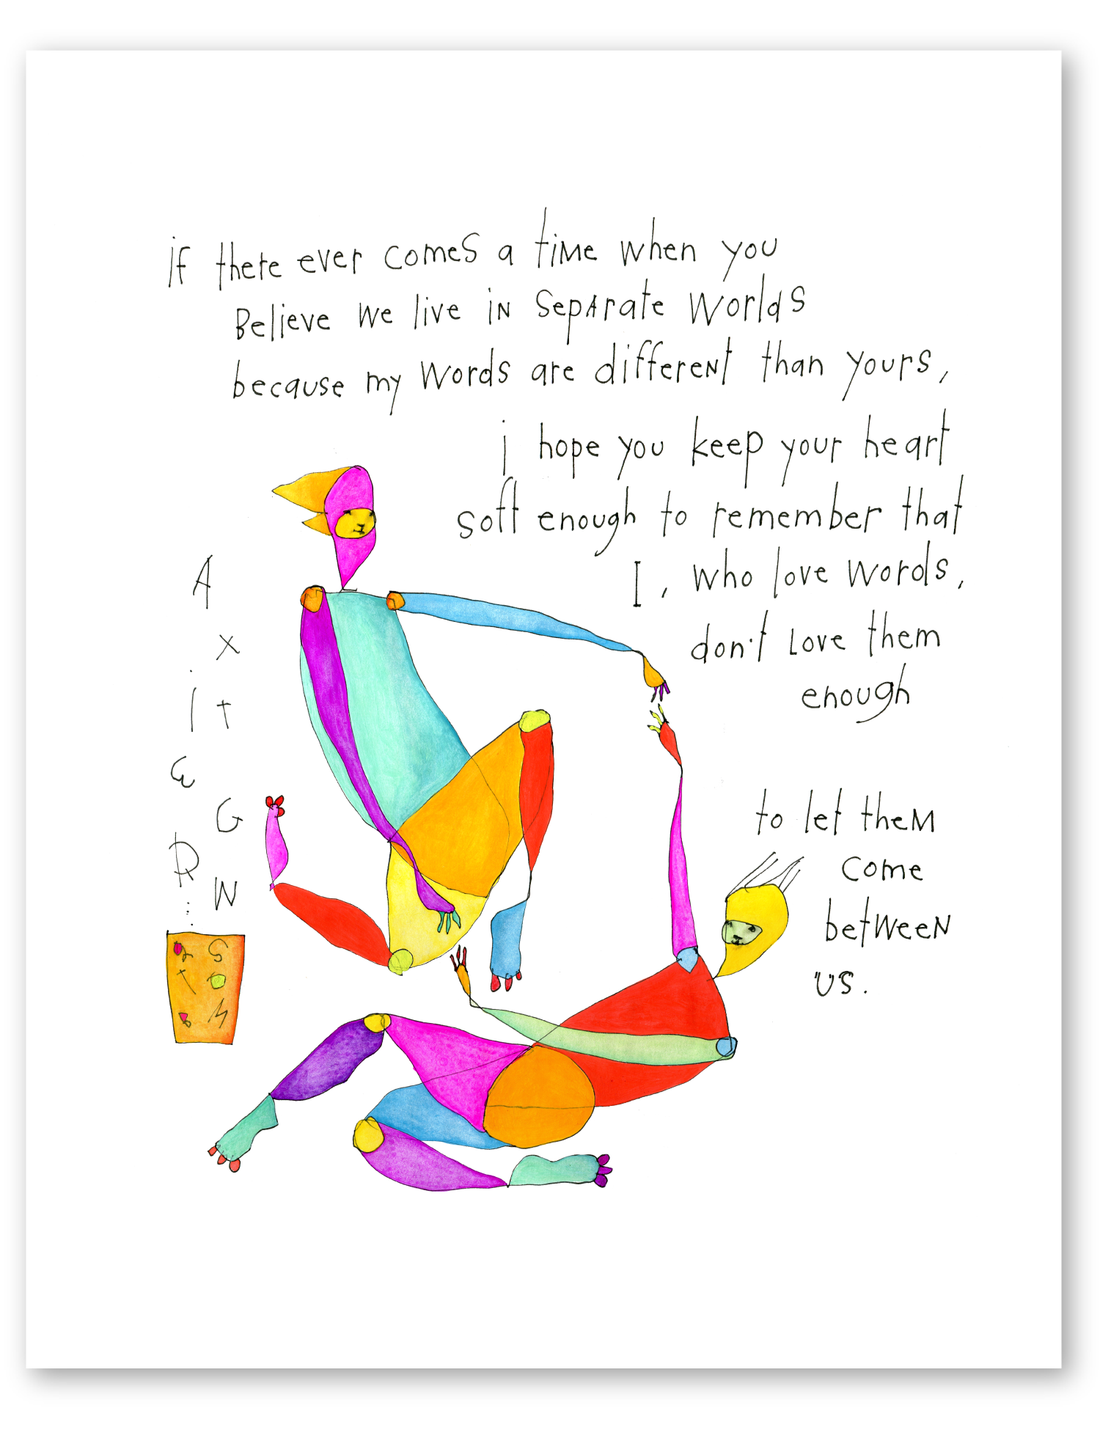 if there ever comes a time when you
Believe we live in Separate Worlds
because my Words are different than yours,
i hope you keep your heart
soft enough to remember that
I, who love words,
don't Love them
enough
A
x
i t
G
R
W
S
M
to let them
come
between
us.